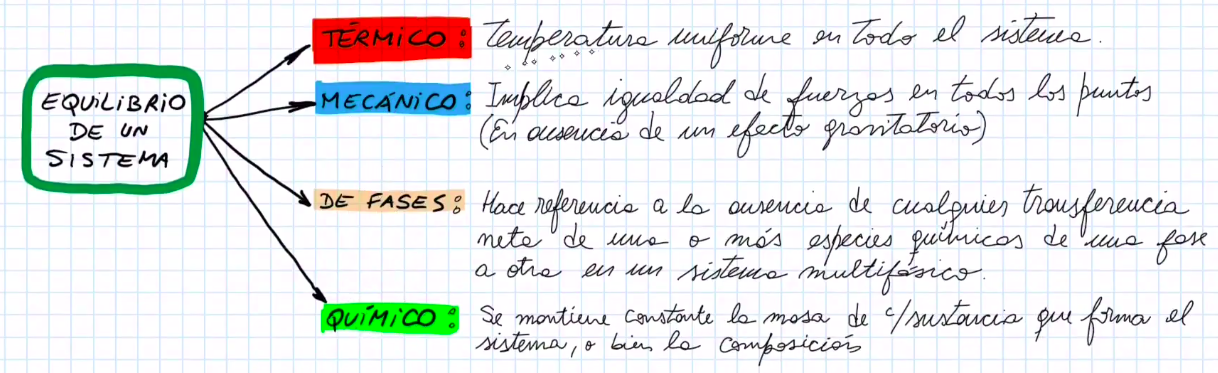 EQUILIBRIO
DE UN
SISTEMA
TÉRMICO: Temperatura uniforme en todo el sistema.
MECÁNICO: Implica igualdad de fuerzas en todos los puntos
(En ausencia de un efecto gravitatorio)
DE FASES: Hace referencia a la ausencia de cualquier transferencia
neta de una o más especies químicas de una fase
a otra en un sistema multifásico.
QUÍMICO: Se mantiene constante la masa de c/sustancia que forma el
sistema, o bien la composición